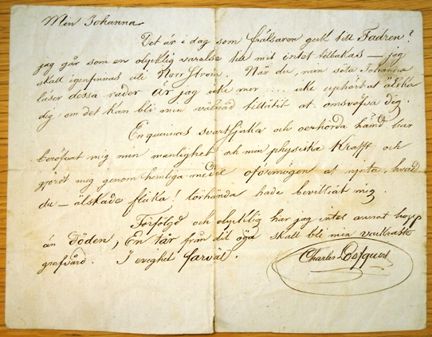 Min Johanna
Det är i dag som Frälsaren gick till Fadren!
jag går som en olycklig varelse till mitt intet tillbakas — jag
skall igenfinnas uti Norrström. När du, min söta Johanna
läser dessa rader är jag icke mer ... icke upphört at älska
dig, om det kan bli min vålnad tillåtit at omsväfva dig.
En quinnas svartsjuka och oerhörda hämd har
beröfvat mig min manlighet och min physiska Krafft och
gjordt mig genom hemliga medel oförmögen at njuta, hvad
du — älskade flicka! hade bevilliat mig.
Förföljd och olycklig har jag intet annat hopp
än döden, En tår från dit öga skall bli min
grafvård. I evighet farväl.
Charles